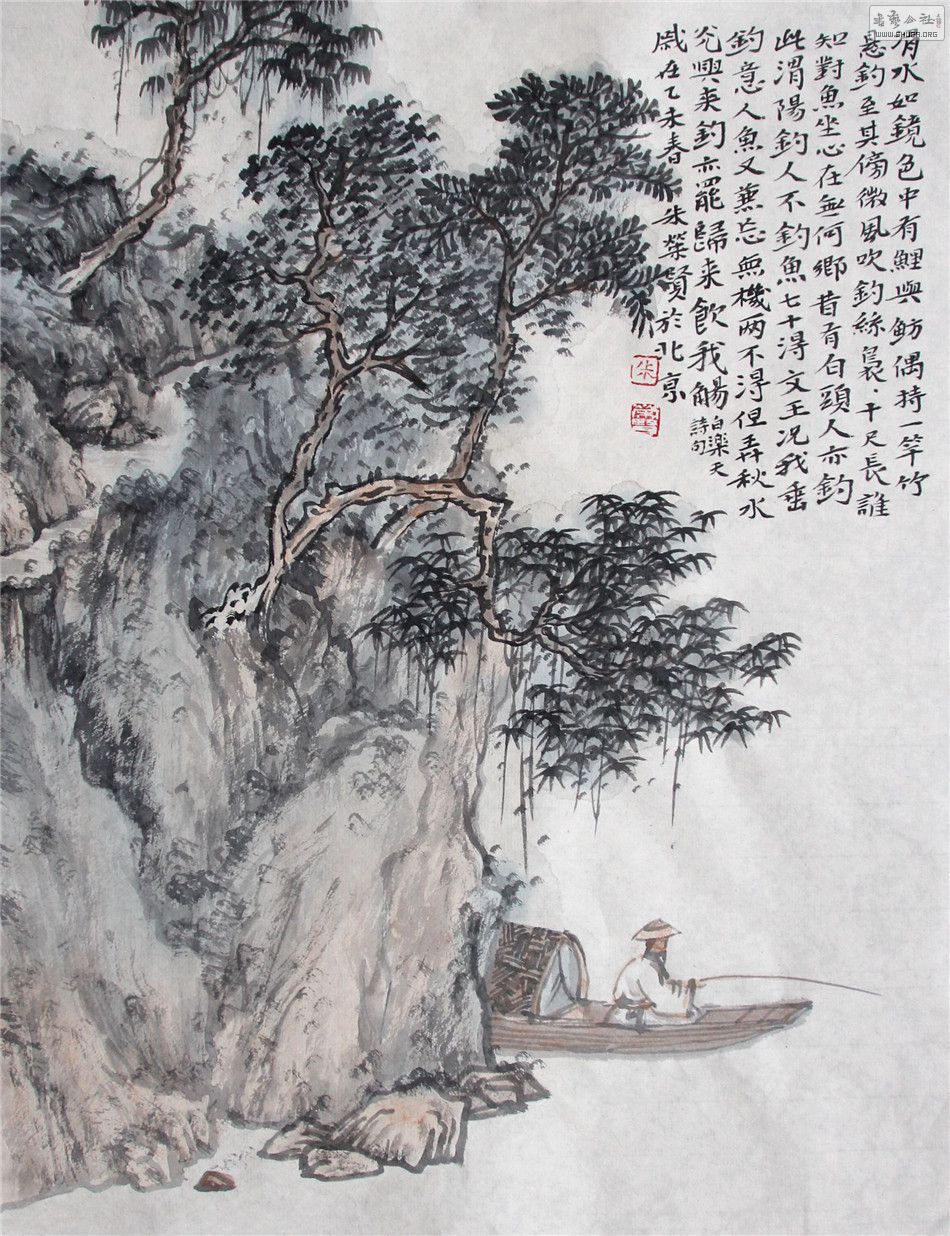 渭水如鏡色中有鯉與魴偶持一竿竹
悬釣至其傍微風吹釣絲裊、十尺長誰
知對魚坐心在無何鄉昔有白頭人亦釣
此渭陽釣人不釣魚七十淂文王况我垂
釣意人魚又兼忘無機两不淂但弄秋水
光興来釣亦罷歸来飲我觴
白樂天
詩句
歲在乙未春 朱榮賢於北京
朱
書藝公社
www.SHUFA.ORG